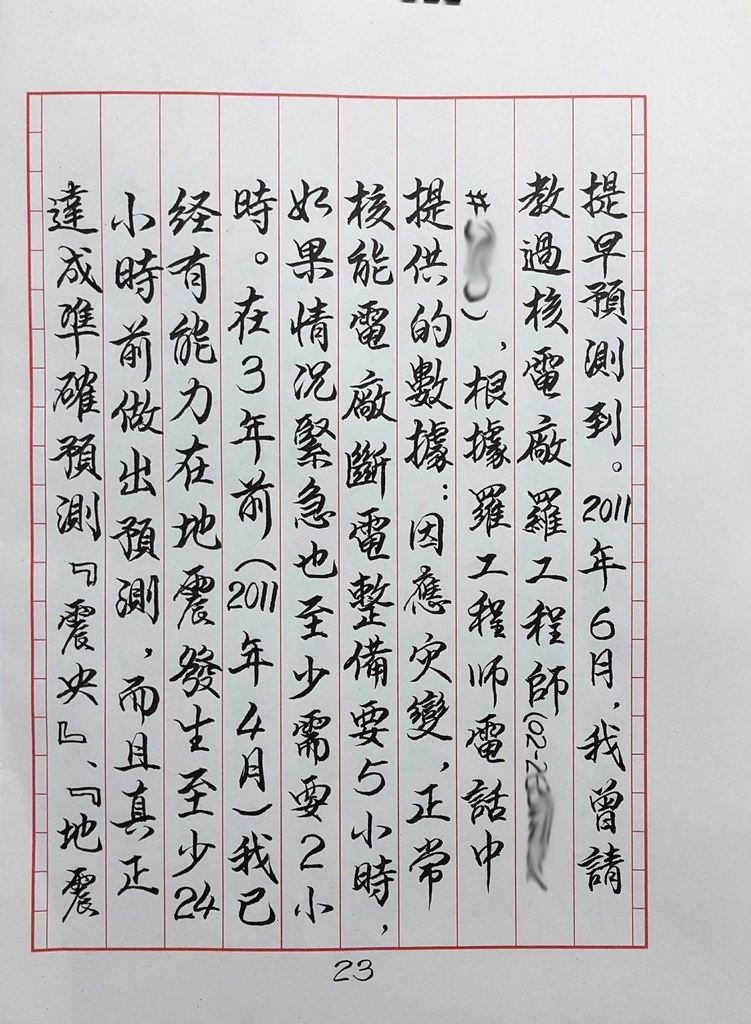 提早預測到。2011年6月，我曾請
教過核電廠羅工程師(02-2
#），根據羅工程师電話中
提供的數據：因應灾變，正常
核能電廠斷電整備要5小時，
如果情况緊急也至少需要2小
時。在3年前（2011年4月）我已
经有能力在地震發生至少24
小時前做出預測，而且真正
達成準確預測『震央』、『地震
23